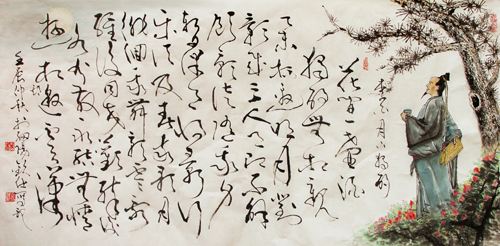 李白月下獨酌
花間一壺酒
獨酌無相親
舉杯邀明月對
影成三人月既不解
飲影徒隨我身
暫伴月將影行
樂須及春我歌月
徘徊我舞影零亂
醒時同交歡醉後
各分散永結無情
遊相期邈雲漢
壬辰仲秋